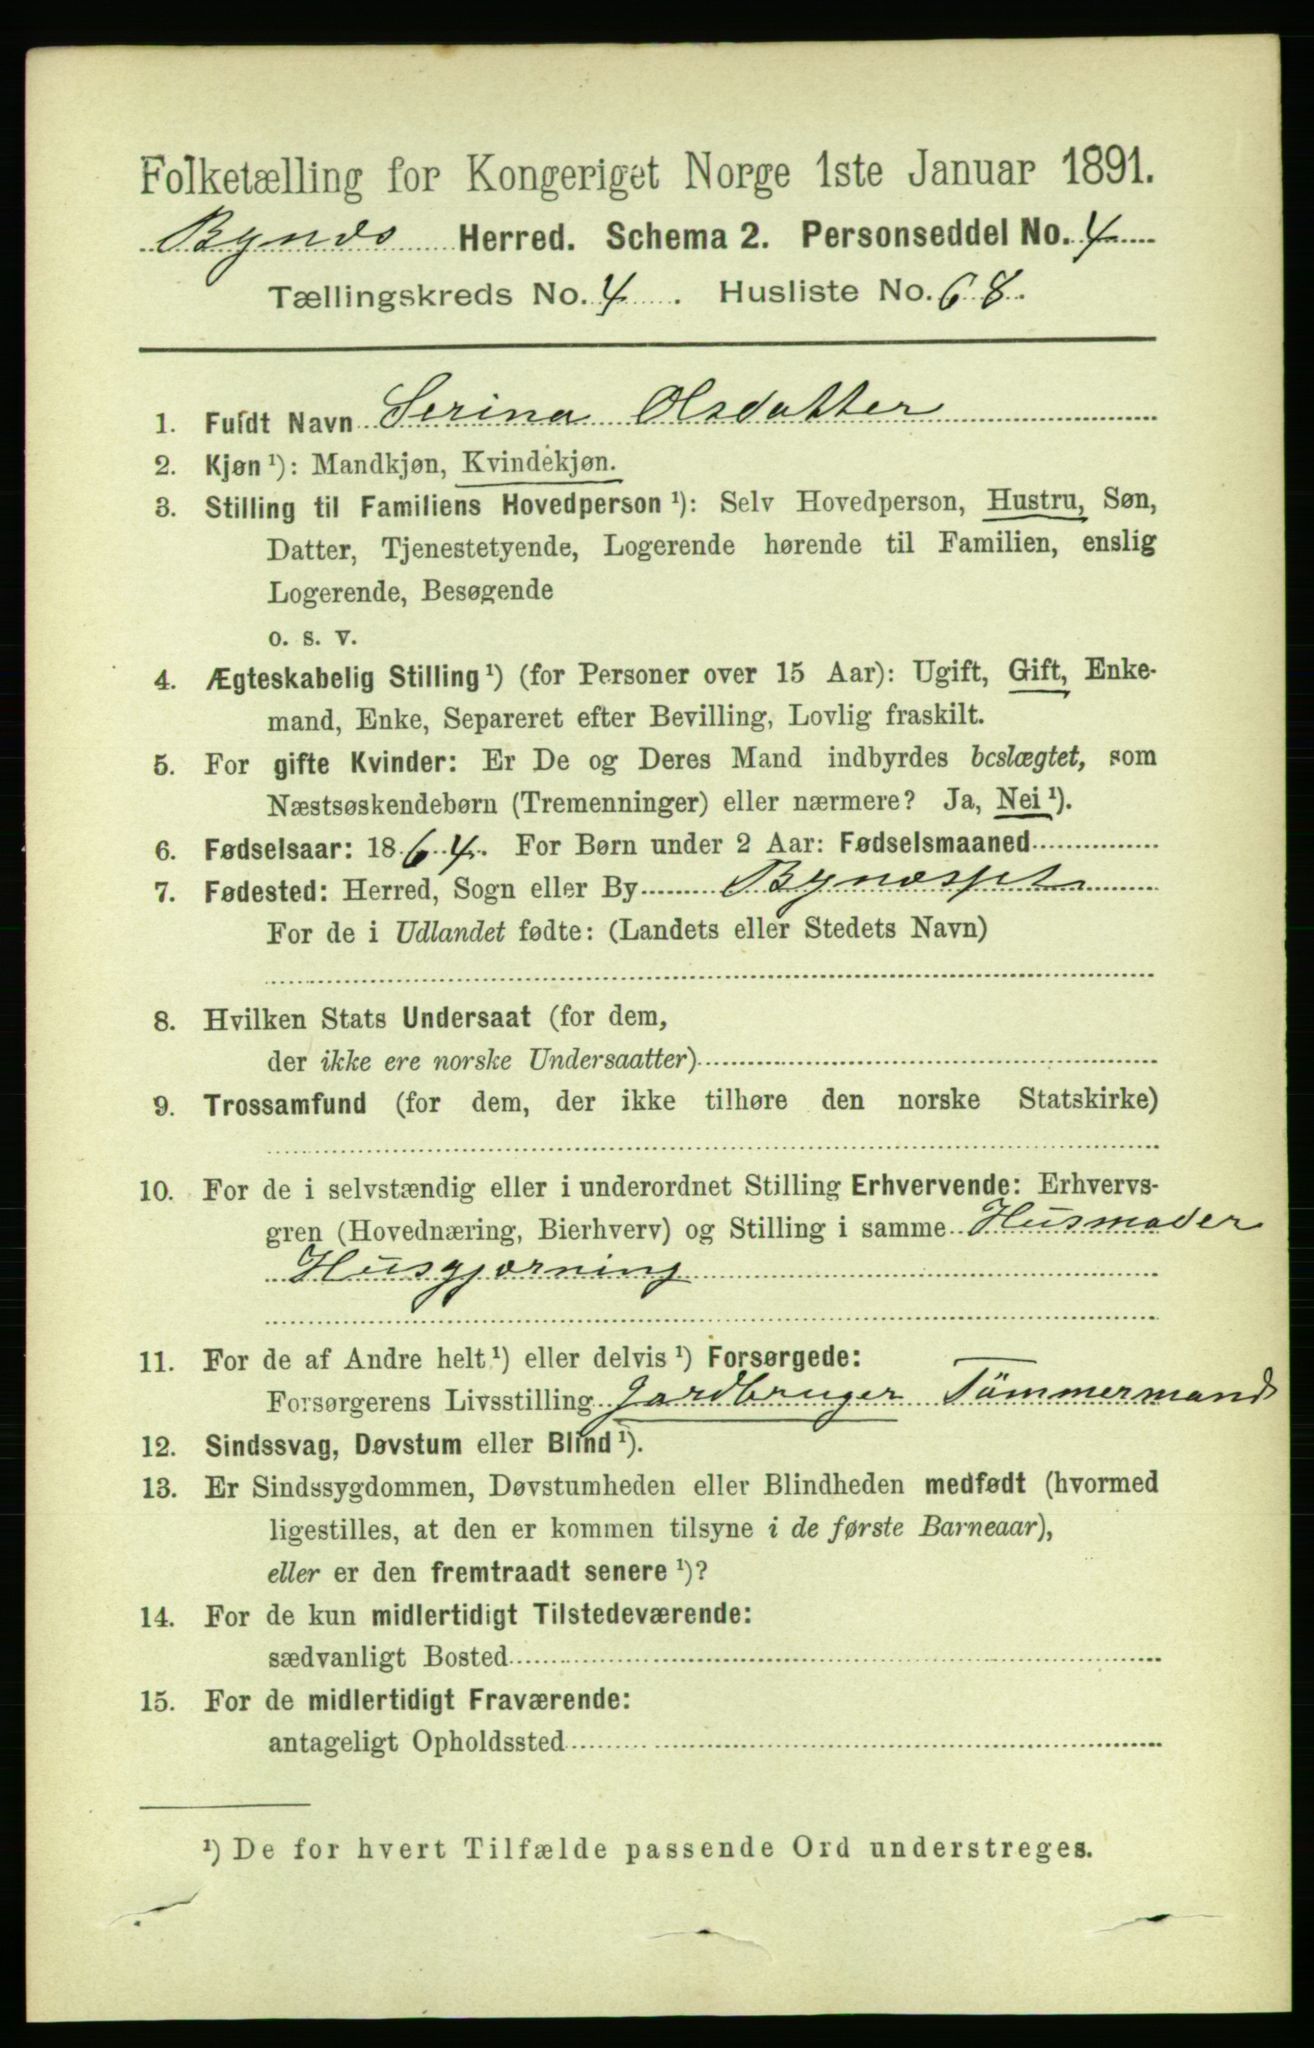 Folketælling for Kongeriget Norge 1ste Januar 1891.
Bynes Herred. Schema 2. Personseddel No. 4
Tællingskreds No. 4. Husliste No. 68.
1. Fuldt Navn Serina Olsdatter
2. Kjøn¹): Mandkjøn, Kvindekjøn.
3. Stilling til Familiens Hovedperson¹): Selv Hovedperson, Hustru, Søn,
Datter, Tjenestetyende, Logerende hørende til Familien, enslig
Logerende, Besøgende
o. s. v.
4. Ægteskabelig Stilling¹) (for Personer over 15 Aar): Ugift, Gift, Enke-
mand, Enke, Separeret efter Bevilling, Lovlig fraskilt.
5. For gifte Kvinder: Er De og Deres Mand indbyrdes beslægtet, som
Næstsøskendebørn (Tremenninger) eller nærmere? Ja, Nei¹).
6. Fødselsaar: 1864. For Børn under 2 Aar: Fødselsmaaned
7. Fødested: Herred, Sogn eller By
For de i Udlandet fødte: (Landets eller Stedets Navn)
8. Hvilken Stats Undersaat (for dem,
der ikke ere norske Undersaatter)
9. Trossamfund (for dem, der ikke tilhøre den norske Statskirke)
10. For de i selvstændig eller i underordnet Stilling Erhvervende: Erhvervs-
gren (Hovednæring, Bierhverv) og Stilling i samme Husmoder
Husgjerning
11. For de af Andre helt¹) eller delvis¹) Forsørgede:
Forsørgerens Livsstilling Gardbruger Tømmermand
12. Sindssvag, Døvstum eller Blind¹).
13. Er Sindssygdommen, Døvstumheden eller Blindheden medfødt (hvormed
ligestilles, at den er kommen tilsyne i de første Barneaar),
eller er den fremtraadt senere¹)?
14. For de kun midlertidigt Tilstedeværende:
sædvanligt Bosted
15. For de midlertidigt Fraværende:
antageligt Opholdssted
¹) De for hvert Tilfælde passende Ord understreges.